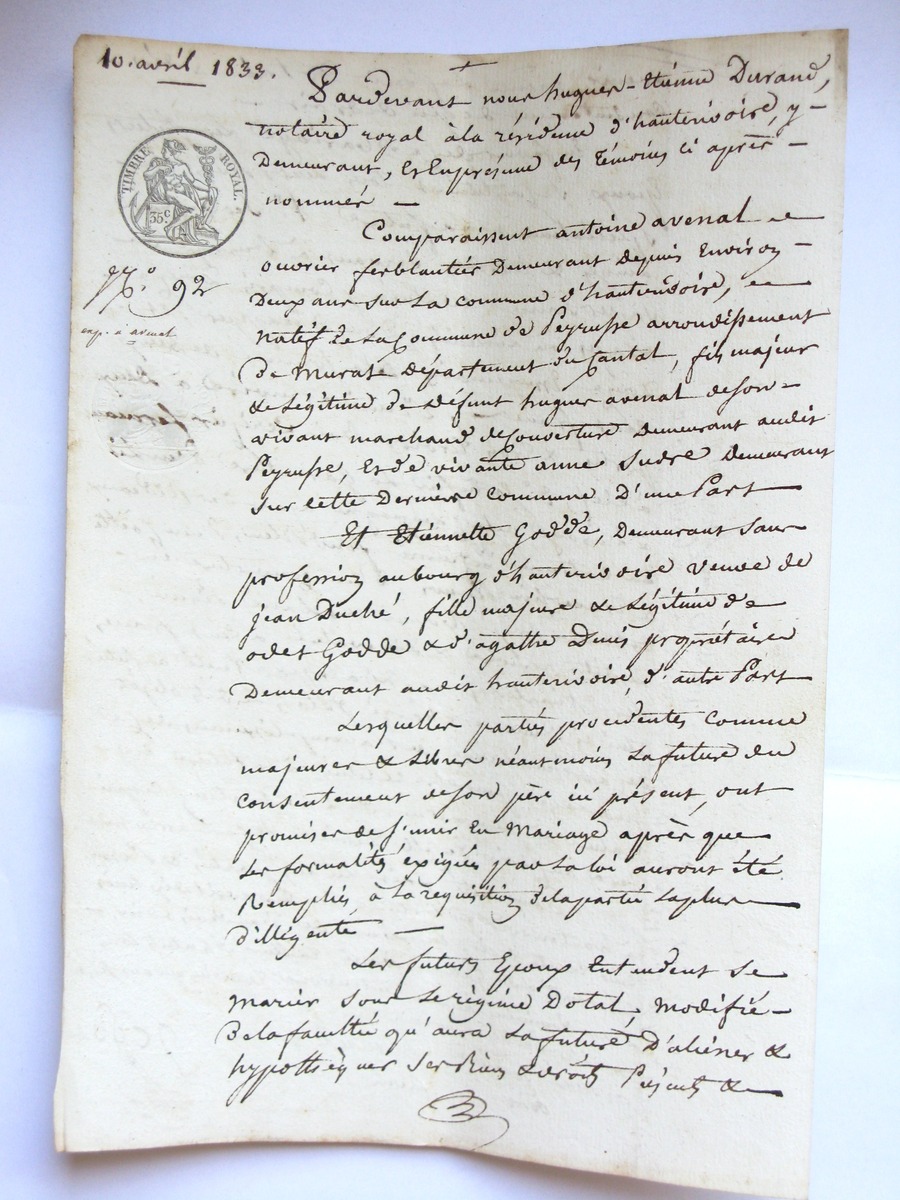 10. avril 1833.
Pardevant nous hugues-Etienne Durand,
notaire royal à la résidence d'hauterivoire, y
Demeurant, Et En présence des Témoins ci après
nommés
TIMBRE ROYAL.
35c
Comparaissent antoine avenal
ouvrier ferblantier Demeurant depuis Environ
N.º 92
Deux ans sur La commune d'hauterivoire,
exp. à avenal
natif de La Commune de Peyrusse arrondissement
de Murat Département du Cantal, fils majeur
& Légitime de défunt hugues avenal de son
vivant marchand de Couverture Demeurant audit
Peyrusse, Et de vivante anne Sudre demeurant
sur cette Dernière Commune D'une Part
Et Etiennette Godde, Demeurant sans
profession au bourg d'hauterivoire veuve de
jean Duché, fille majeure & Légitime de
odet Godde & d'agathe propriétaire
Demeurant audit hauterivoire, d'autre Part
Lesquelles parties procédantes comme
majeures & Libres néantmoins La future du
Consentement de son père ici présent, ont
promises de s'unir En Mariage après que
Les formalités exigées par La loi auront été
Remplies, à La requisition de la partie La plus
diligente
Les futurs Epoux Entendent se
Marier sous Le régime Dotal, modifié
de la faculté qu'aura La future D'aliéner &
hypothèquer ses Biens & droits Présents &